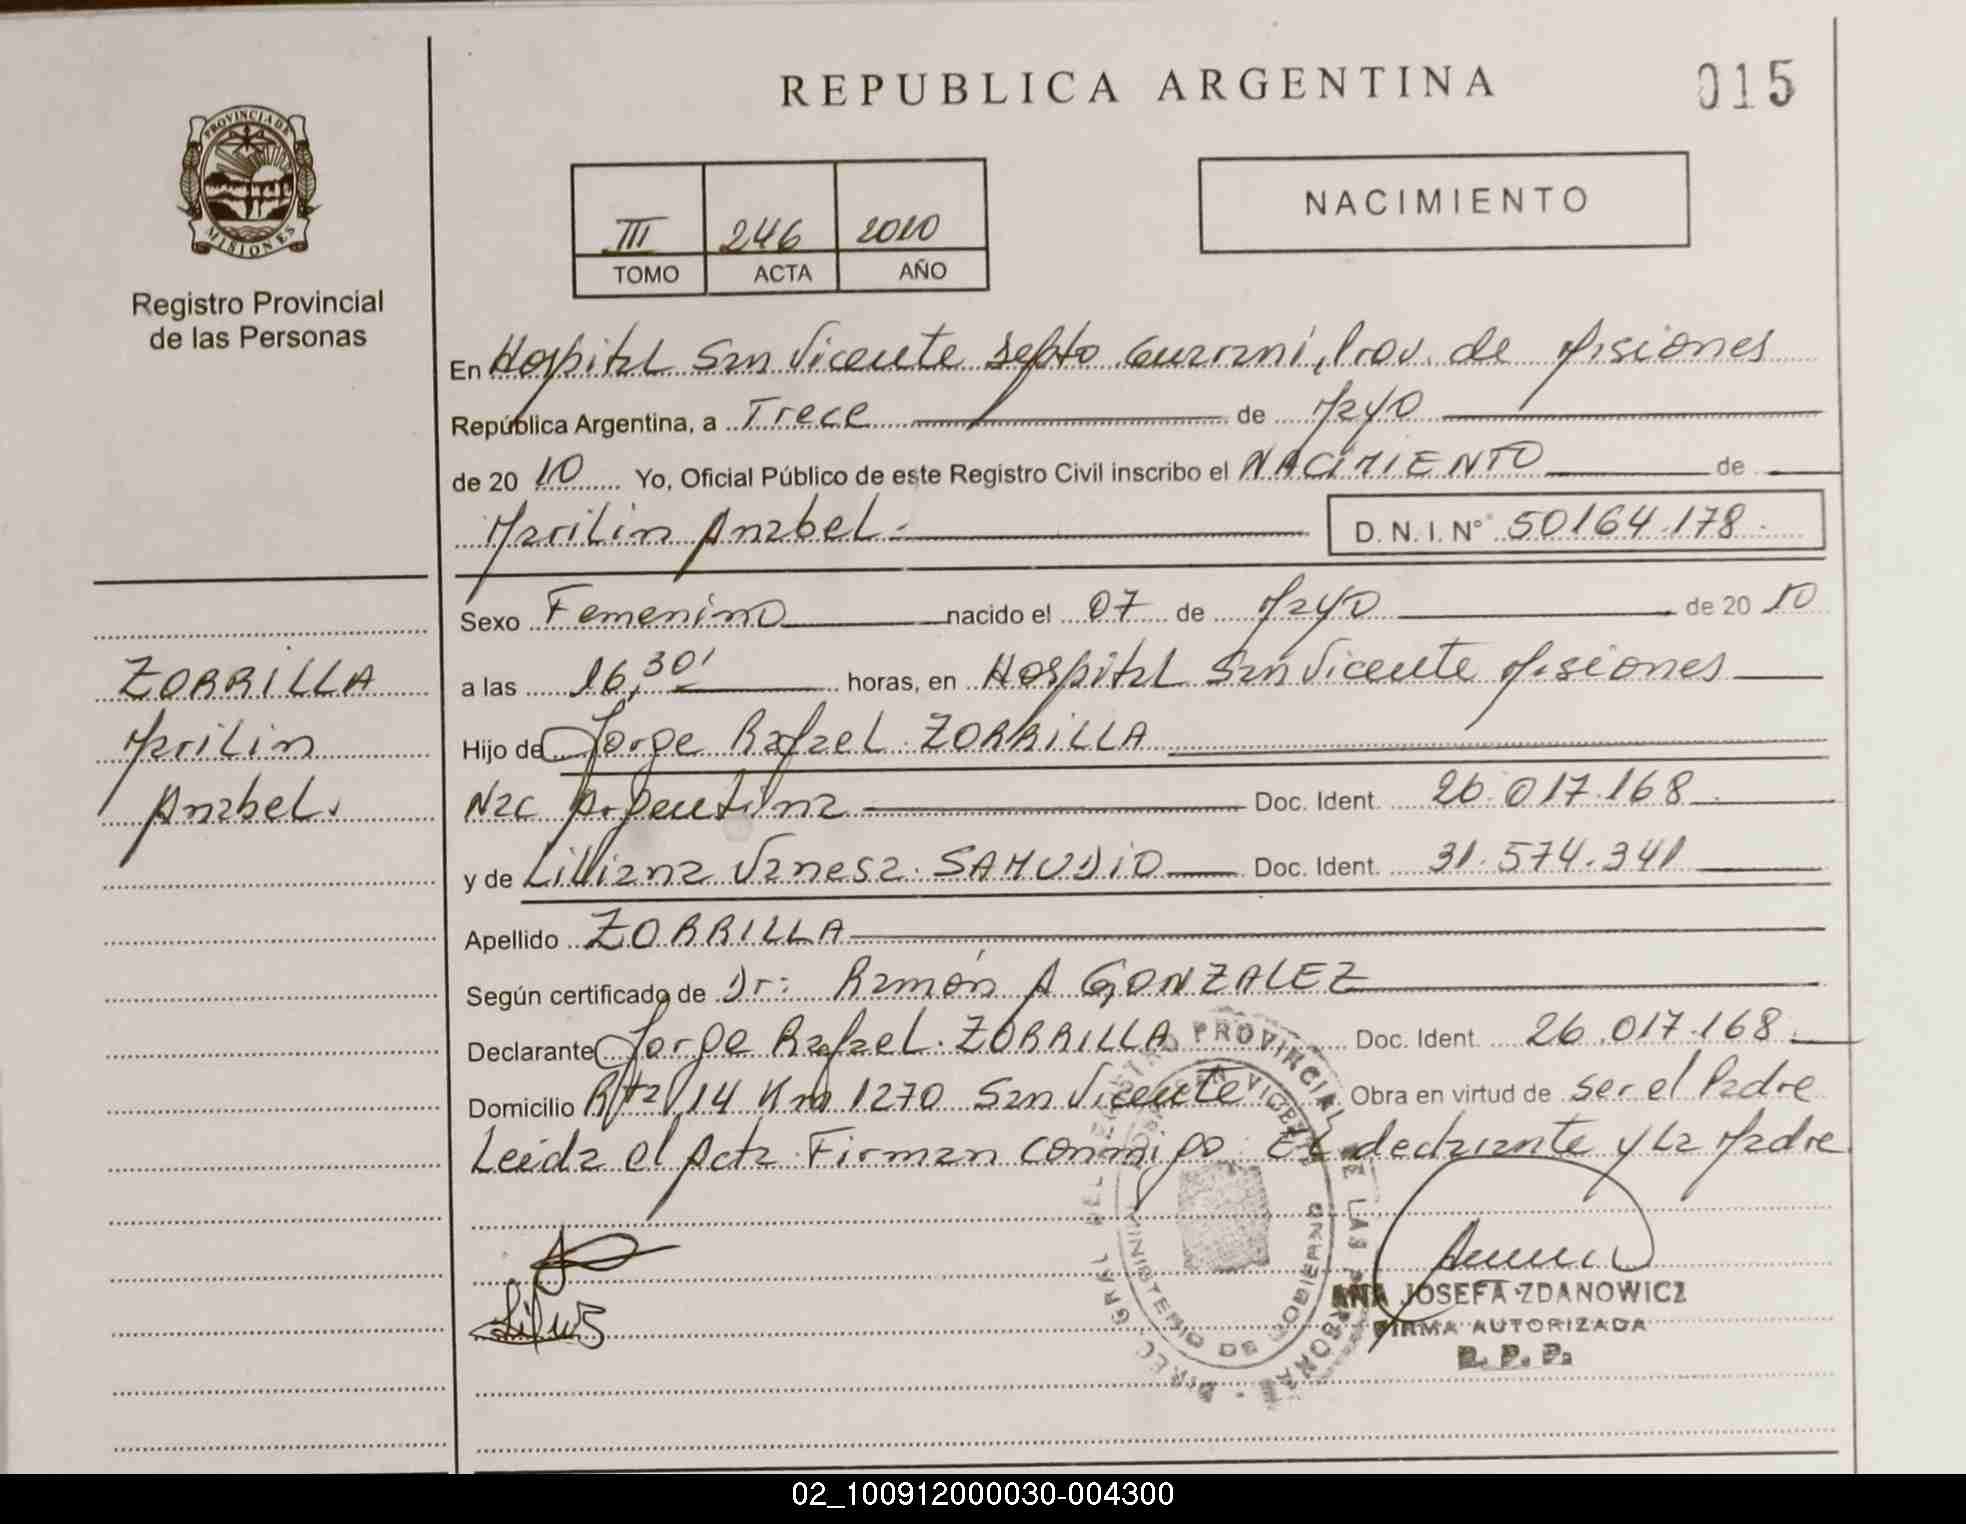 REPUBLICA ARGENTINA
015
PROVINCIA DE
MISIONES
Registro Provincial
de las Personas
III 246 2010
TOMO ACTA AÑO
NACIMIENTO
En Hospital San Vicente Depto Guarani, Prov. de Misiones
República Argentina, a Trece de Mayo
de 20 10 Yo, Oficial Público de este Registro Civil inscribo el NACIMIENTO de
Marilin Anabel.
D. N. I. Nº 50164.178.
Sexo Femenino nacido el 07 de Mayo de 20 10
a las 16,30' horas, en Hospital San Vicente Misiones
Hijo de Jorge Rafael ZORRILLA
Nac Argentina Doc. Ident. 26.017.168
y de Liliana Vanesa. SAMUDIO Doc. Ident. 31.574.341
Apellido ZORRILLA
Según certificado de Dr: Ramón A GONZALEZ
Declarante Jorge Rafael. ZORRILLA Doc. Ident. 26.017.168.
Domicilio Rta 14 Km 1270 San Vicente Obra en virtud de ser el Padre
Leida el Acta Firman conmigo El declarante y La Madre
ZORRILLA
Marilin
Anabel.
DIREC. GRAL DEL REGISTRO PROVINCIAL DE LAS PERSONAS
MINISTERIO DE GOBIERNO
ANA JOSEFA ZDANOWICZ
FIRMA AUTORIZADA
R. P. P.
02_100912000030-004300